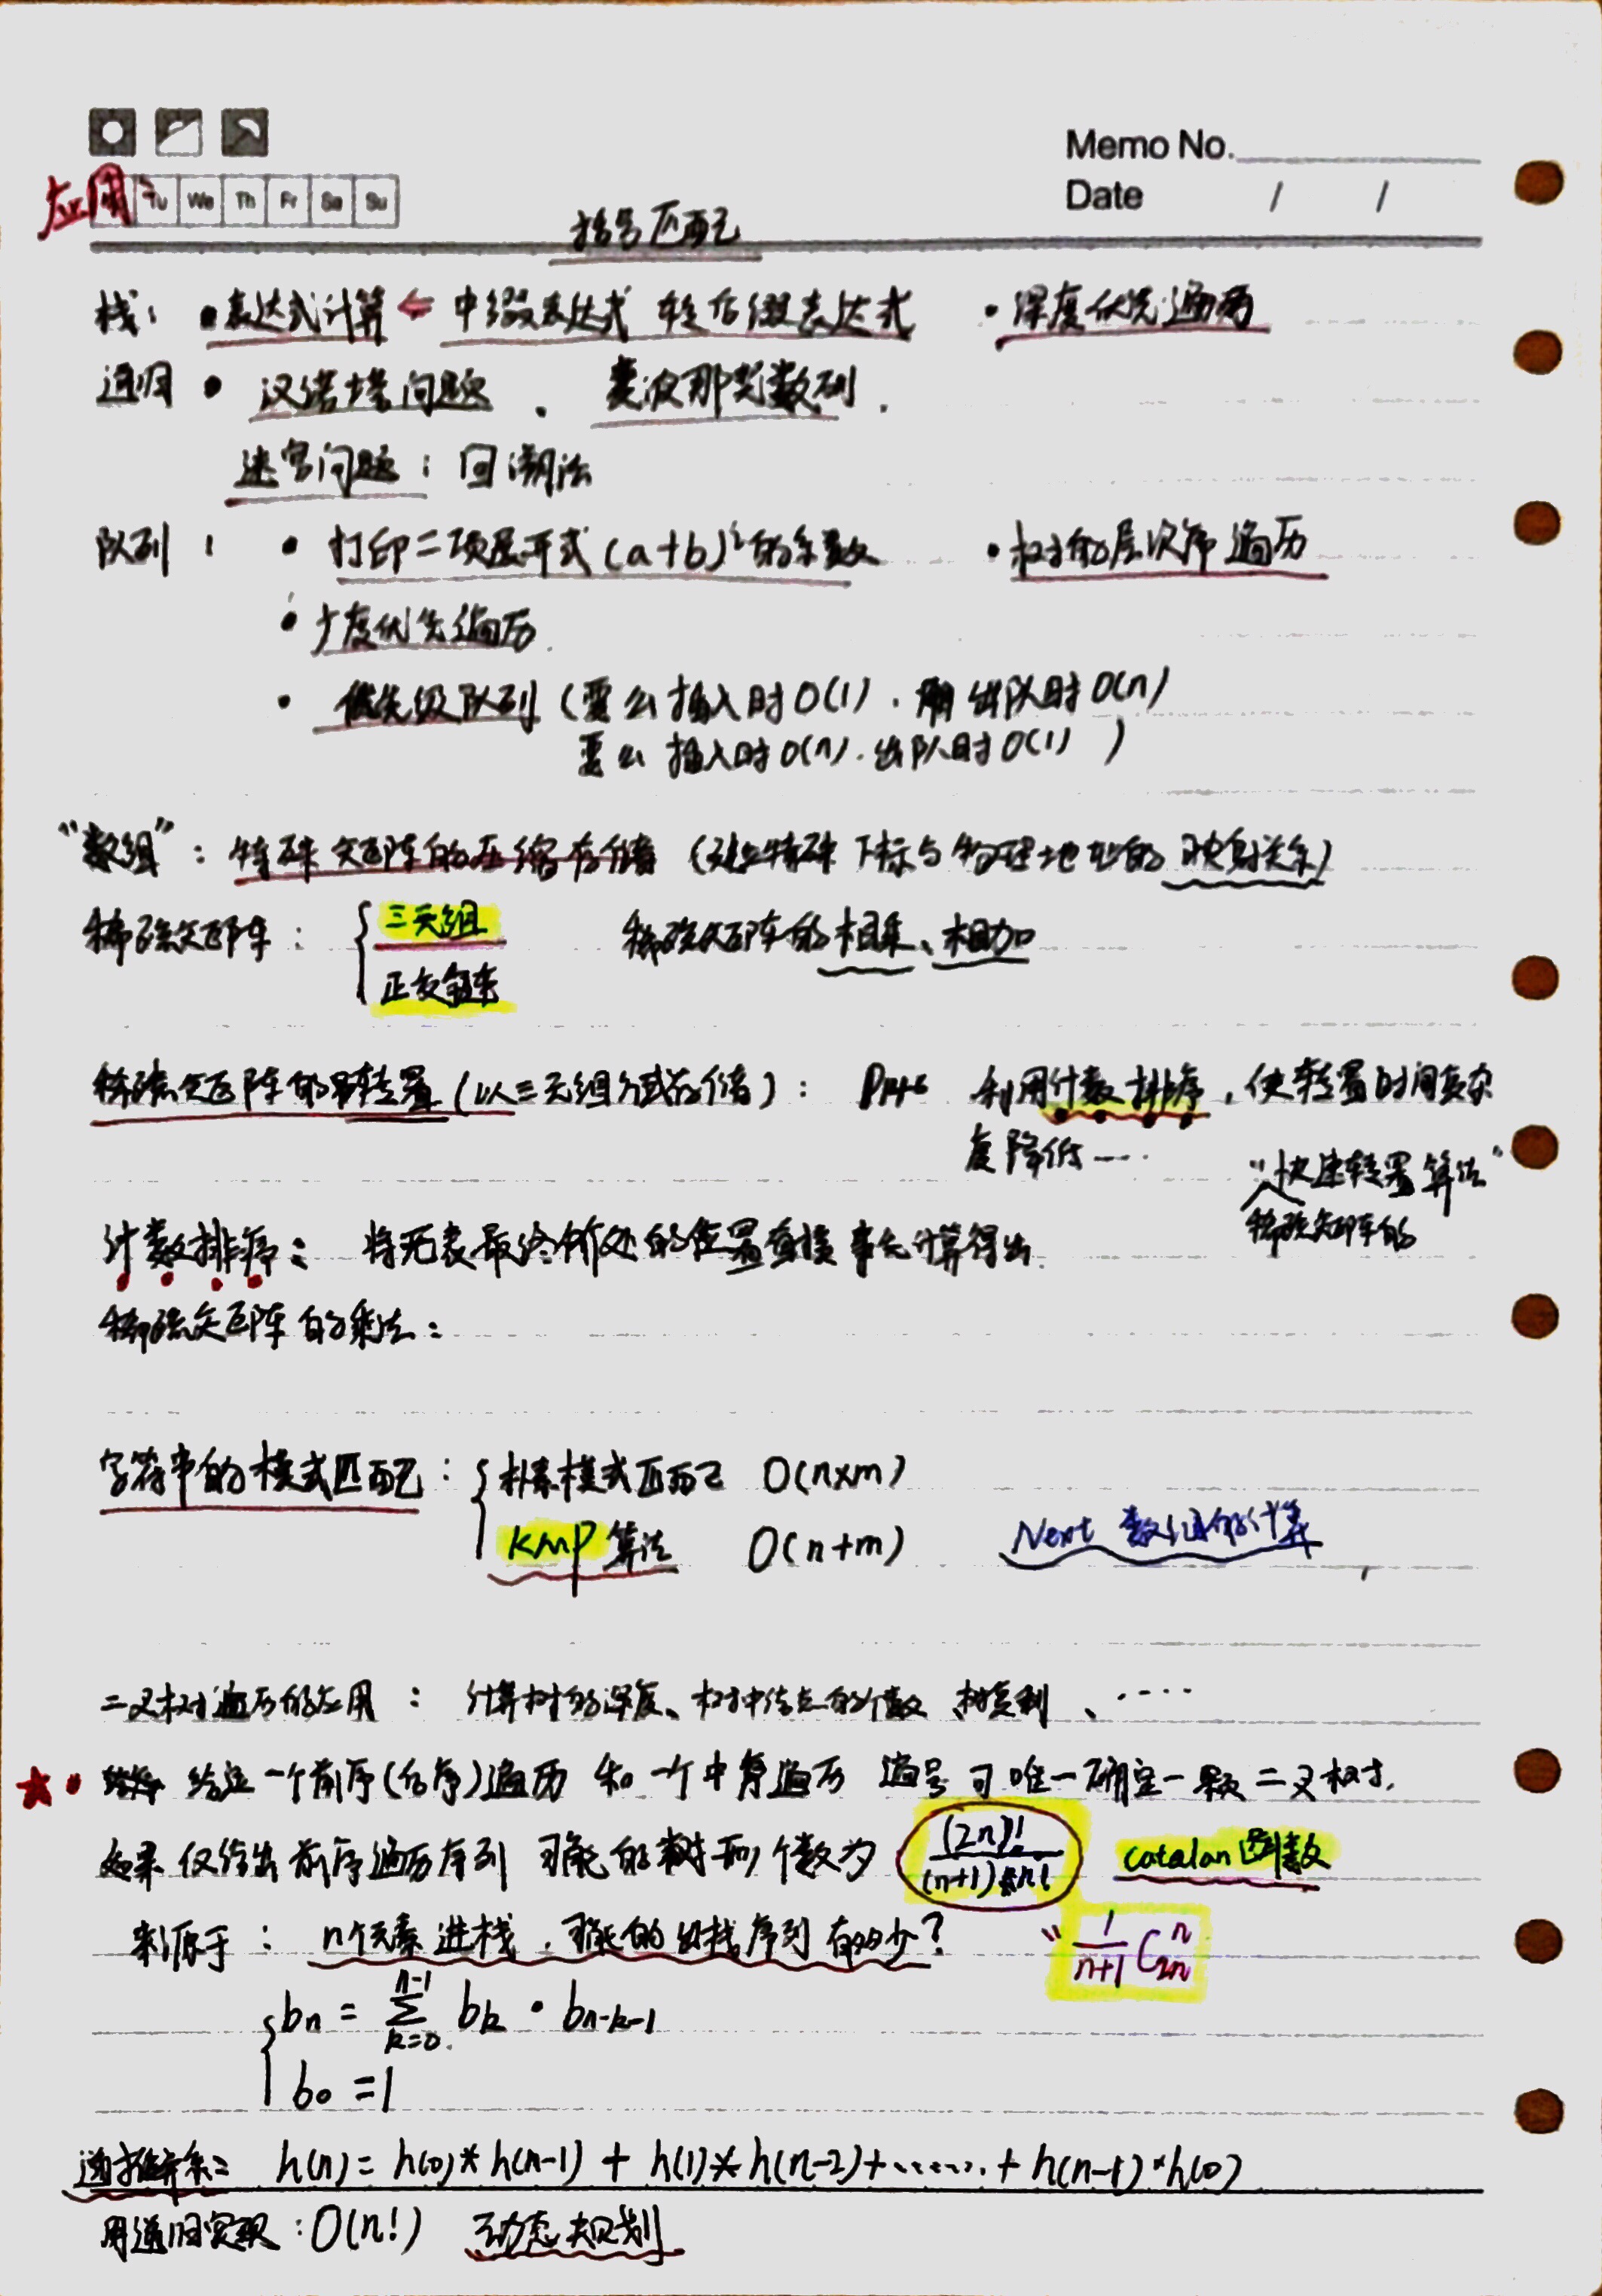 Memo No.
Date / /
应用 Tu We Th Fr Sa Su
括号匹配
栈: • 表达式计算 ← 中缀表达式 转后缀表达式 • 深度优先遍历
递归 • 汉诺塔问题 . 斐波那契数列.
迷宫问题: 回溯法
队列: • 打印二项展开式 (a+b)^i 的系数 • 树的层次序遍历
• 广度优先遍历.
• 优先级队列 (要么插入时O(1), 出队时O(n)
要么插入时O(n). 出队时O(1) )
"数组": 特殊矩阵的压缩存储 (建立特殊下标与物理地址的映射关系)
稀疏矩阵: { 三元组 稀疏矩阵的相乘、相加
正交链表
稀疏矩阵的转置 (以三元组方式存储): P146 利用计数排序, 使转置时间复杂
度降低……
"快速转置算法"
稀疏矩阵的
计数排序: 将元素最终所处的位置直接事先计算得出.
稀疏矩阵的乘法:
字符串的模式匹配: { 朴素模式匹配 O(n×m)
KMP 算法 O(n+m) Next 数组的计算
二叉树遍历的应用: 计算树的深度、树中结点的个数、树复制、……
★• 给定一个前序(后序)遍历 和一个中序遍历 编号可唯一确定一颗二叉树.
如果仅给出前序遍历序列 可能的树形个数为 (2n)!/(n+1)!*n! catalan函数
来源于: n个元素进栈, 可能的出栈序列有多少? " 1/(n+1) C_{2n}^{n}
{ bn = Σ_{k=0}^{n-1} bk • b_{n-k-1}
b0 = 1
递推关系: h(n) = h(0)*h(n-1) + h(1)*h(n-2)+……+ h(n-1)*h(0)
用递归实现: O(n!) 动态规划